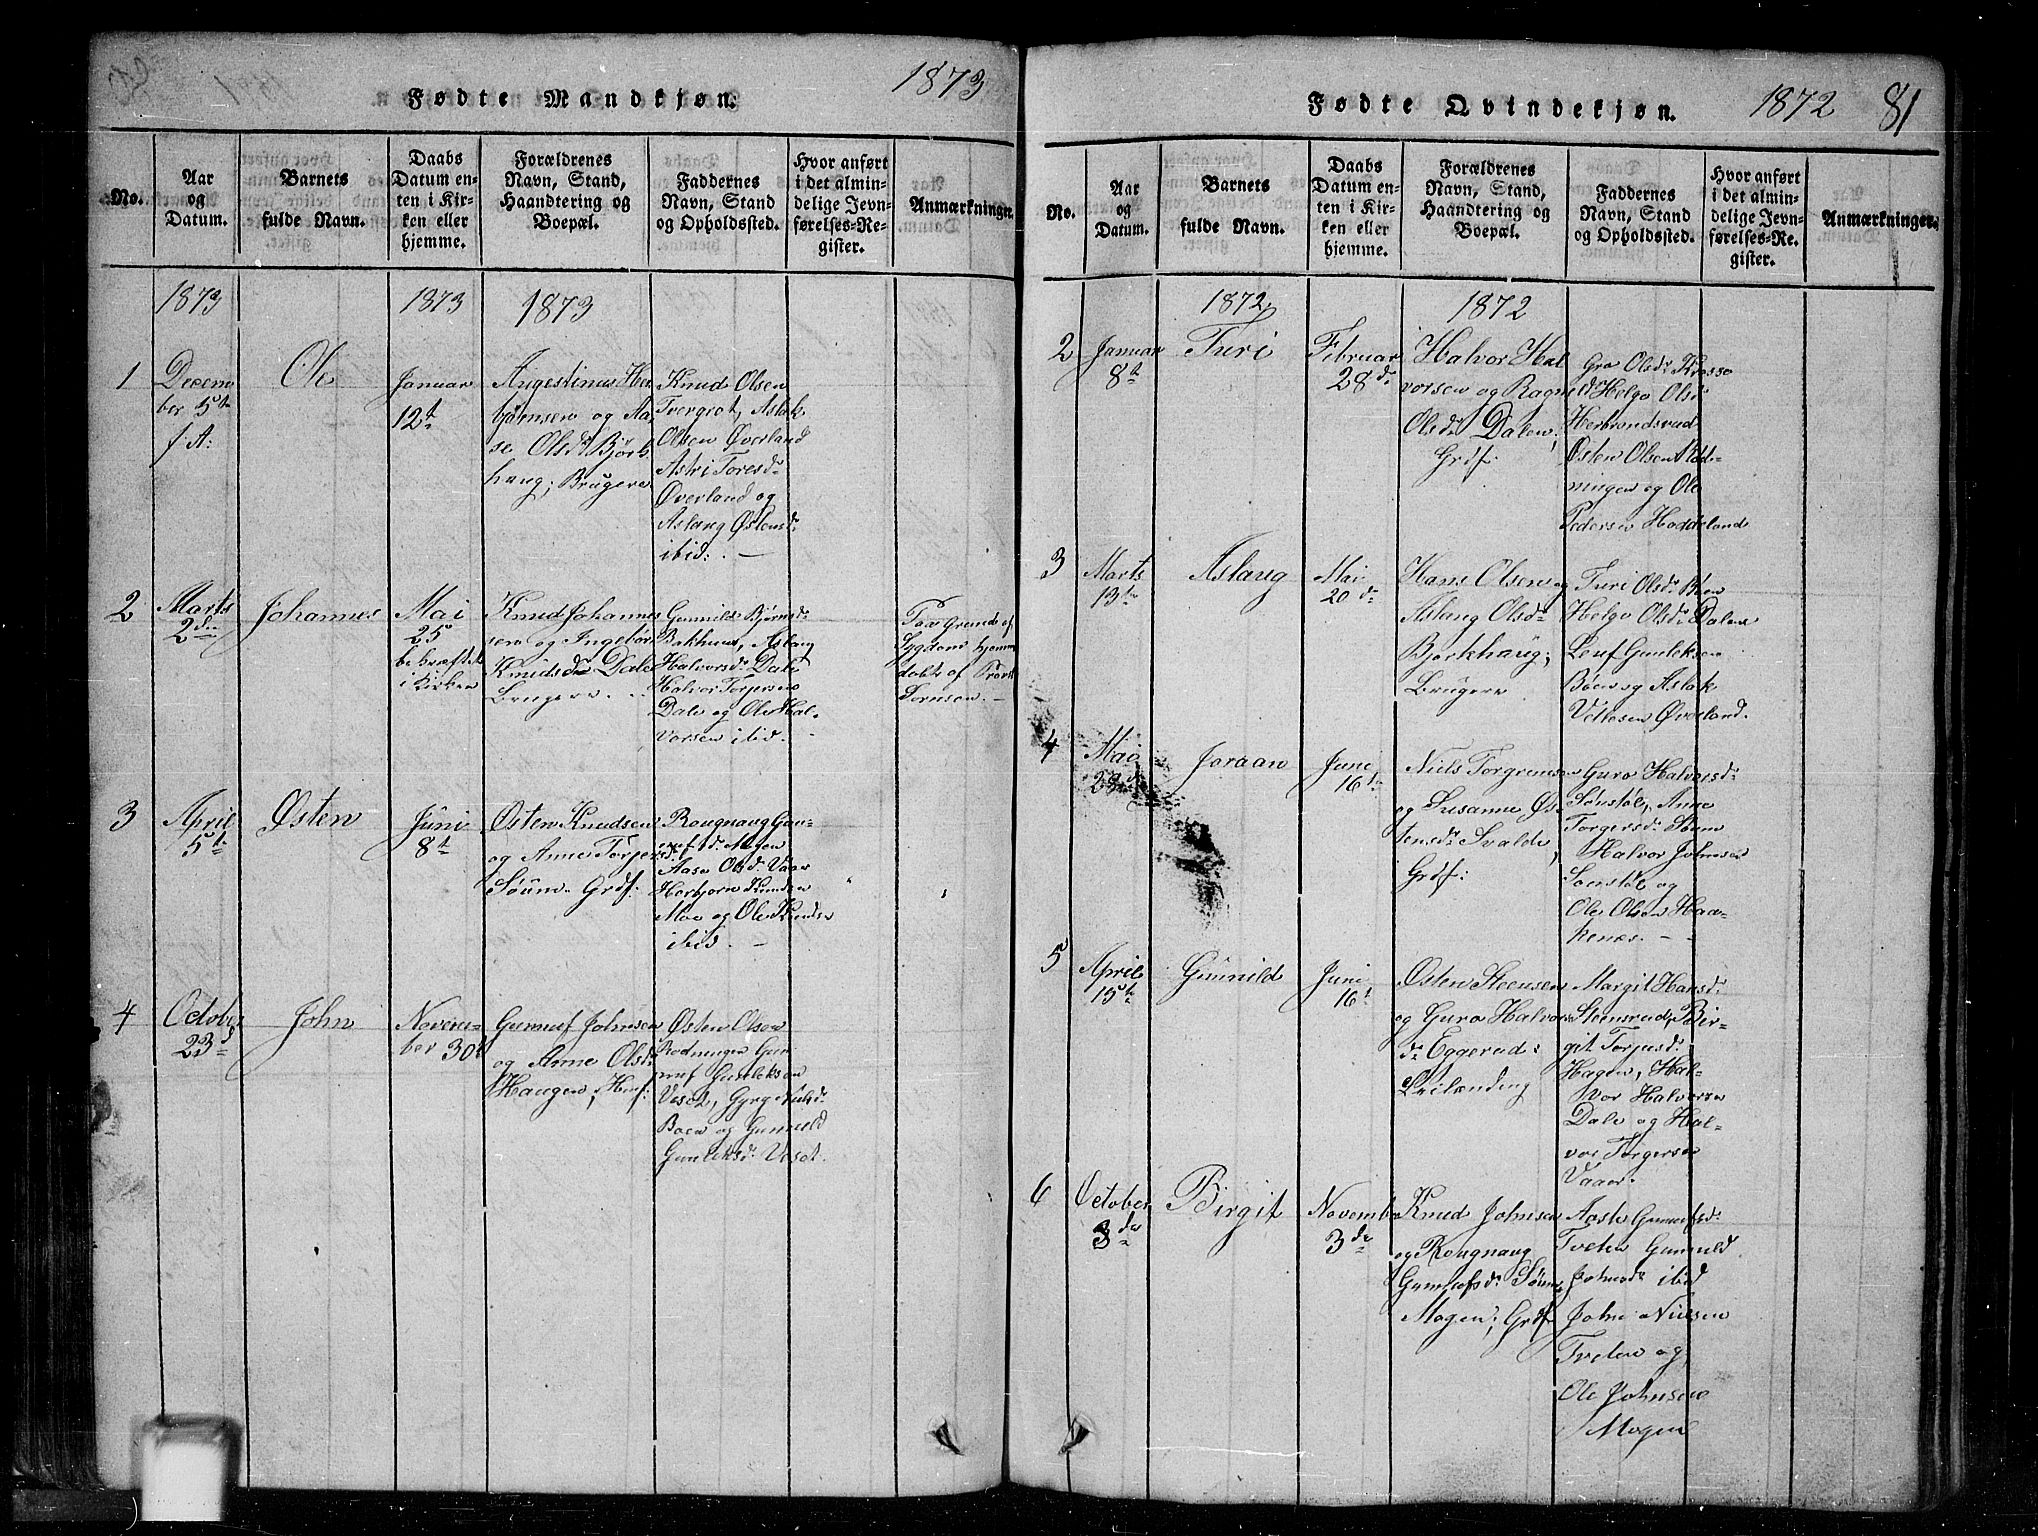 Fødte Mandkjøn.
1873
No.
Aar og Datum.
Barnets fulde Navn.
Daabs Datum enten i Kirken eller hjemme.
Forældrenes Navn, Stand, Haandtering og Boepæl.
Faddernes Navn, Stand og Opholdssted.
Hvor anført i det almindelige Jevnførelses-Register.
Anmærkninger.
1873
1873
1873
1
Decem
ber 5te
f A:
Ole
Januar
12t
Augestinus Her
bjørnsen og Aa,
se Olsdr Bjørk
haug; Brugere
Knud Olsen
Tvergrot, Aslak
Olsen Øverland
Astri Toresdr
Øverland og
Aslaug Østensdr
ibid: —
2
Marts
2den
Johannes
Mai
25
bekræftet
i Kirken
Knud Johannes
sen og Ingebor
Knudsdr Dale
Brugere
Gunnild Bjørnsdr
Bakhuus, Aslaug
Halvorsdr Dale
Halvor Torjersen
Dale og Ole Hal-
vorsen ibid.
Paa grund af
Sygdom hjemme
døbt af
3
April
5t
Østen
Juni
8t
Østen Knudsen
og Anne Torjersdr
Søum Grdf:
Rougnaug Gun-
nufsdr Mogen
Aase Olsdr Vaar
Herbjørn Knudsen
Moe og Ole Knudsen
ibid. —
4
October
23d
John
Novem-
ber 30t
Gunnuf Johnsen
og Anne Olsdr
Haugen, Husf:
Østen Olsen
Rodningen Gun
nuf Gunleksen
Vesot, Gyrg Nilsdr
Boen og Gunnild
Gunleksdr Vesot.
Fødte Qvindekjøn.
1872
81
No.
Aar og Datum.
Barnets fulde Navn.
Daabs Datum enten i Kirken eller hjemme.
Forældrenes Navn, Stand, Haandtering og Boepæl.
Faddernes Navn, Stand og Opholdssted.
Hvor anført i det almindelige Jevnførelses-Register.
Anmærkninger.
1872
1872
2
Januar
8t
Turi
Februar
28de
Halvor Hal
vorsen og Ragnild
Olsdr Dalen;
Grdf.
Gro Olsdr Krosso
Helge Olsdr
Herbrandsrud
Østen Olsen Rod-
ningen og Ole
Pedersen Hoddeland
3
Marts
13te
Aslaug
Mai
20de
Hans Olsen og
Aslaug Olsdr
Bjørkhaug;
Brugere
Turi Olsdr Böen
Helge Olsdr Dalen
Leuf Gunleksen
Böen og Aslak
Vetlesen Øverland.
4
Mai
Joraan
June
16t
Niels Torgrimsen
og Susanne Øs-
tensdr Svalde,
Grdf:
Guro Halvorsdr
Sønstøl, Anne
Torgersdr Søem
Halvor Johnsen
Sønstøl og
Ole Olsen Haa-
kenæs. —
5
April
15te
Gunnild
Juni
16t
Østen Steensen
og Guro Halvors
dr Eggerud:
Leilænding
Margit Hansdr
Steensrud, Bir-
git Torjusdr
Hagen, Hal-
vor Halvorsen
Dale og Hal-
vor Torgersen
Vaar.
6
October
3de
Birgit
Novembr
3de
Knud Johnsen
og Rougnaug
Gunnufsdr Søum
Mogen; Grdf
Aaste Gunnufsdr
Tveten Gunnild
Johnsdr ibid
John Nielsen
Tveten og
Ole Johnsen
Mogen